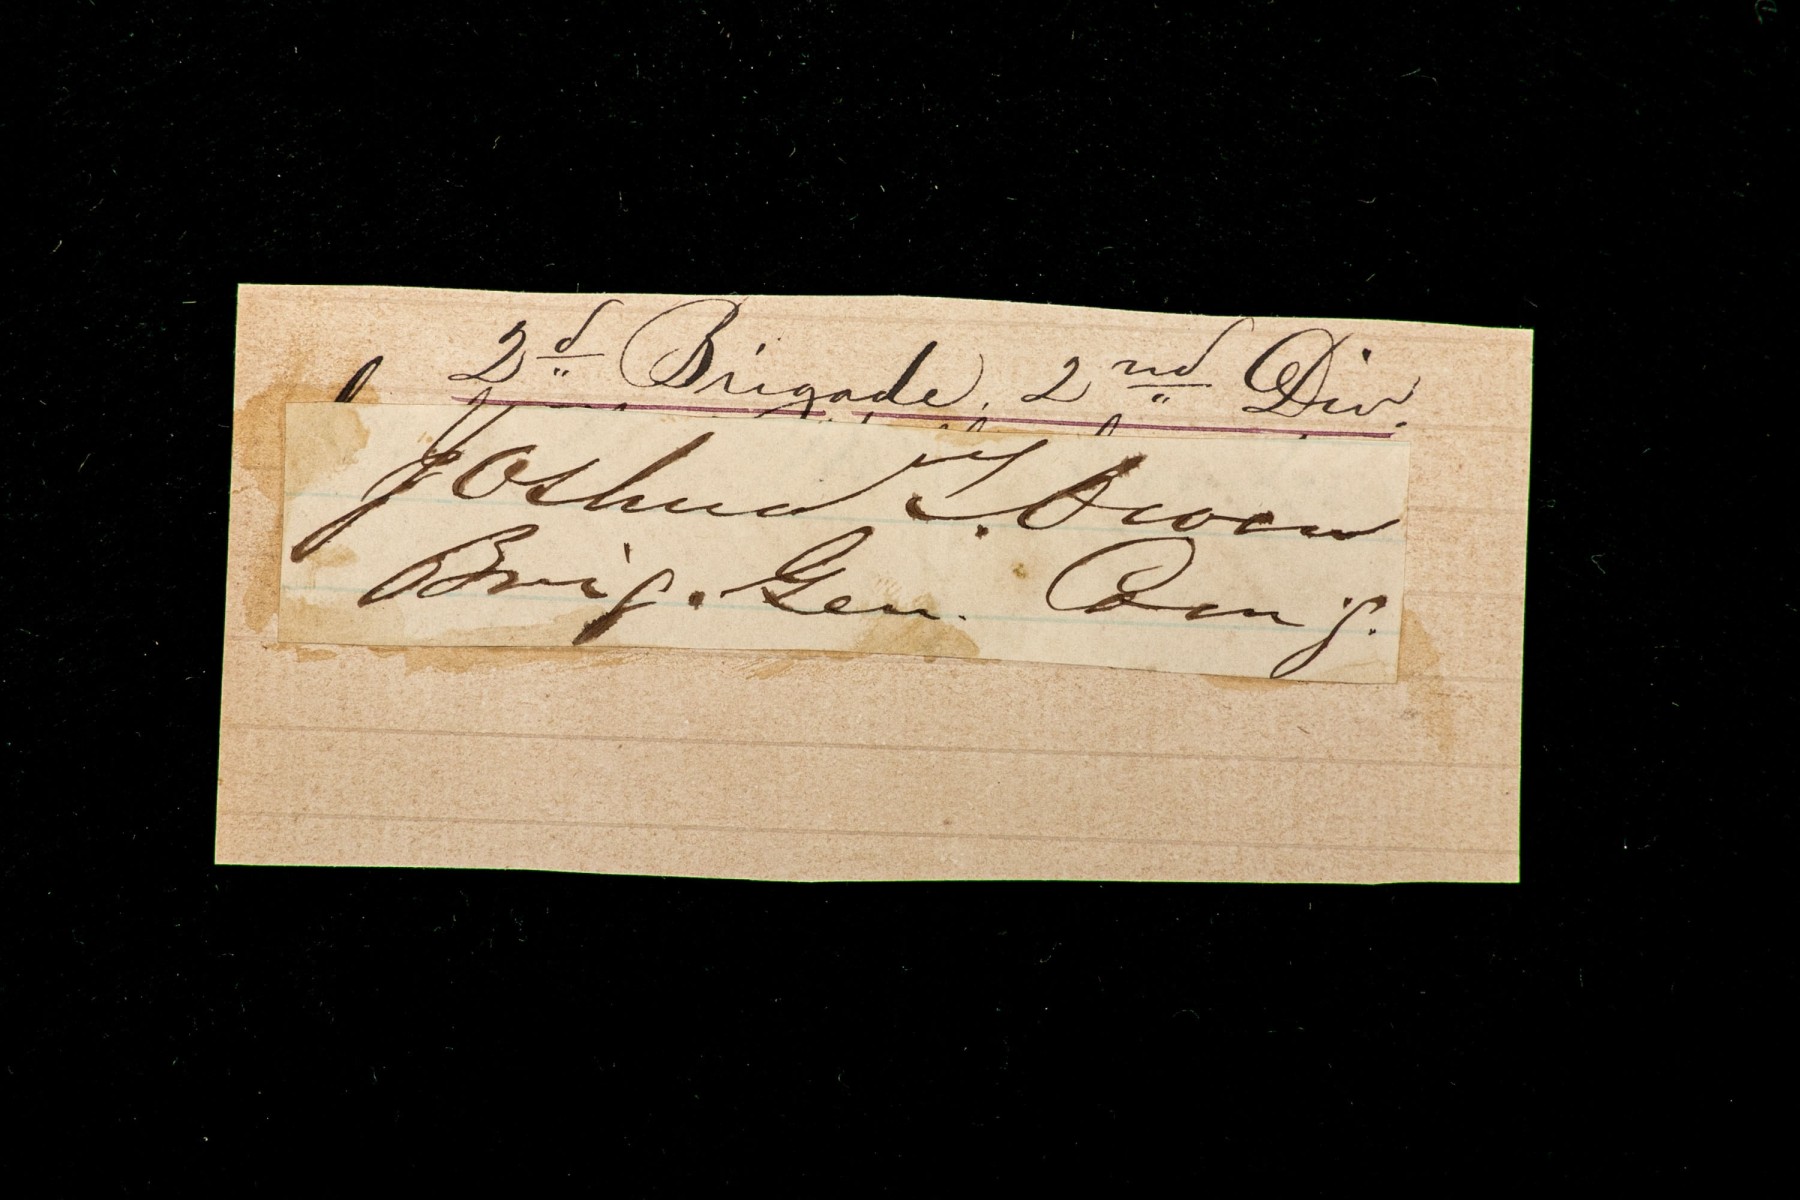 2d Brigade, 2nd Div.
Joshua T. Owen
Brig. Gen. Com'g.